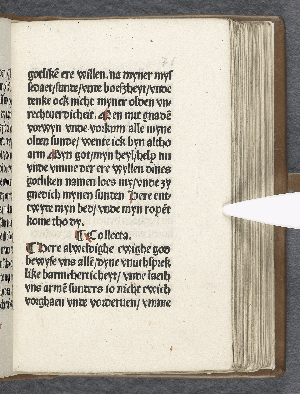 gotlikē ere willen. na myner mys
sedaet/sunde/vnde boeßheyt/vnde
denke ock nicht myner olden vn-
rechuerdicheit. Pen nut gnadē
vorwyn vnde vorkum alle myne
olden sunde/wente ick byn altho
arm Myn got/myn heyl/help mi
vnde vmme der ere wyllen dines
gotliken namen loes my/vnde zy
gnedich mynen sunden Here ent-
twyde myn bed/vnde myn ropēt
kome tho dy.
Collecta.
Here alweldighe ewighe god
bewyse vns allē/dyne vnuthsprek
like barmeherticheyt/vnde laeth
vns armē sunders io nicht ewich
vorghaen vnde vorderuen/vmme